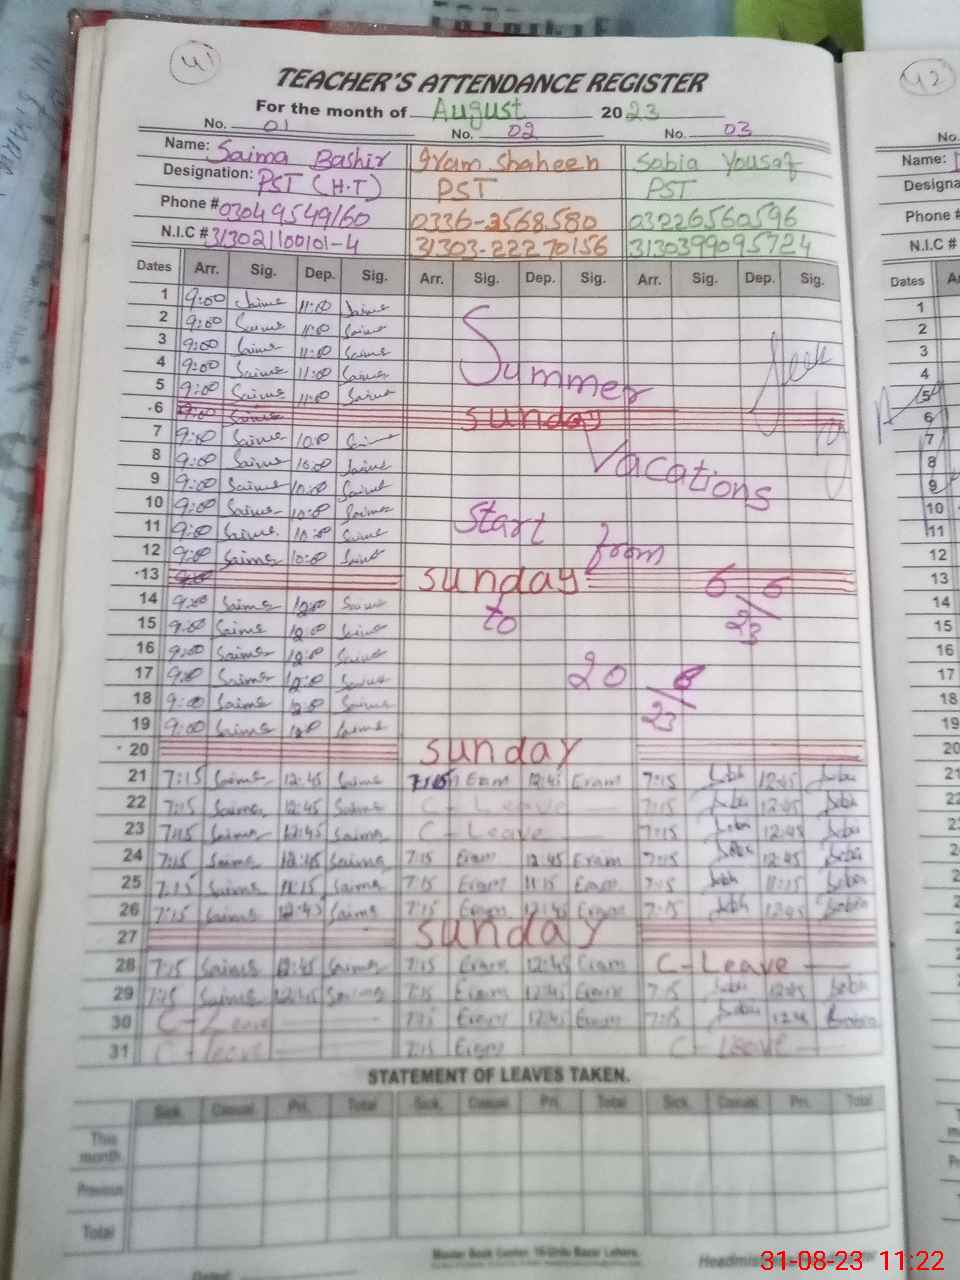 41
TEACHER'S ATTENDANCE REGISTER
For the month of August 2023
No. 01 No. 02 No. 03
Name: Saima Bashir Iram Shaheen Sobia Yousaf
Designation: PST (H.T) PST PST
Phone # 03049549160 0336-2568580 03226560596
N.I.C # 313021100101-4 31303-22270156 3130399095724
Dates Arr. Sig. Dep. Sig. Arr. Sig. Dep. Sig. Arr. Sig. Dep. Sig.
1 9:00 Saima 11:00 Saima
2 9:00 Saima 11:00 Saima
3 9:00 Saima 11:00 Saima
4 9:00 Saima 11:00 Saima
5 9:00 Saima 11:00 Saima
Summer
6 9:00 Saima sunday
7 9:00 Saima 10:00 Saima
8 9:00 Saima 10:00 Saima
Vacations
9 9:00 Saima 10:00 Saima
10 9:00 Saima 10:00 Saima
11 9:00 Saima 10:00 Saima
Start from
12 9:00 Saima 10:00 Saima
13 9:00 sunday
6 6/23
14 9:00 Saima 12:00 Saima
to
15 9:00 Saima 12:00 Saima
16 9:00 Saima 12:00 Saima
17 9:00 Saima 12:00 Saima
20 8/23
18 9:00 Saima 12:00 Saima
19 9:00 Saima 12:00 Saima
20 sunday
21 7:15 Saima 12:45 Saima 7:15 Eram 12:45 Eram 7:15 Sobia 12:45 Sobia
22 7:15 Saima 12:45 Saima C-Leave 7:15 Sobia 12:45 Sobia
23 7:15 Saima 12:45 Saima C-Leave 7:15 Sobia 12:45 Sobia
24 7:15 Saima 12:45 Saima 7:15 Eram 12:45 Eram 7:15 Sobia 12:45 Sobia
25 7:15 Saima 11:15 Saima 7:15 Eram 11:15 Eram 7:15 Sobia 11:15 Sobia
26 7:15 Saima 12:45 Saima 7:15 Eram 12:45 Eram 7:15 Sobia 12:45 Sobia
27 sunday
28 7:15 Saima 12:45 Saima 7:15 Eram 12:45 Eram C-Leave
29 7:15 Saima 12:45 Saima 7:15 Eram 12:45 Eram 7:15 Sobia 12:45 Sobia
30 C-Leave 7:15 Eram 12:45 Eram 7:15 Sobia 12:45 Sobia
31 C-leave 7:15 Eram C-Leave
STATEMENT OF LEAVES TAKEN.
Sick. Casual. Pri. Total Sick. Casual. Pri. Total Sick. Casual. Pri. Total
This month.
Previous
Total
Master Book Center, 16-Urdu Bazar Lahore.
Dated: Headmistress/Headmaster
42
No.
Name:
Designa
Phone #
N.I.C #
Dates Ar
1
2
3
4
5
6
7
8
9
10
11
12
13
14
15
16
17
18
19
20
21
22
31-08-23 11:22